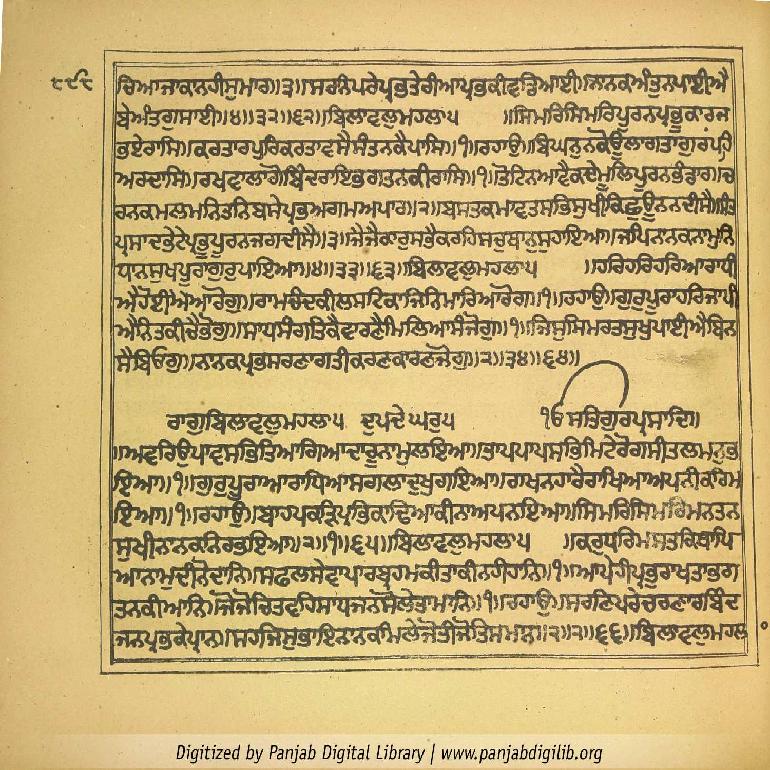 ੮੯੮
ਚਿਆਜਾਕਨਹੀਸੁਮਾਰ॥੩॥ਸਰਨਿਪਰੇਪ੍ਰਭਤੇਰੀਆਪ੍ਰਭਕੀਵਡਿਆਈ॥ਨਾਨਕਅੰਤੁਨਪਾਈਐ
ਬੇਅੰਤਗੁਸਾਈ॥੪॥੩੨॥੬੨॥ਬਿਲਾਵਲੁਮਹਲਾ੫ ॥ਸਿਮਰਿਸਿਮਰਿਪੂਰਨਪ੍ਰਭੂਕਾਰਜ
ਭਏਰਾਸਿ॥ਕਰਤਾਰਪੁਰਿਕਰਤਾਵਸੈਸੰਤਨਕੈਪਾਸਿ॥੧॥ਰਹਾਉ॥ਬਿਘਨੁਨਕੋਊਲਾਗਤਾਗੁਰਪਹਿ
ਅਰਦਾਸਿ॥ਰਖਵਾਲਾਗੋਬਿੰਦਰਾਇਭਗਤਨਕੀਰਾਸਿ॥੧॥ਤੋਟਿਨਆਵੈਕਦੇਮੂਲਿਪੂਰਨਭੰਡਾਰ॥ਚ
ਰਨਕਮਲਮਨਿਤਨਿਬਸੇਪ੍ਰਭਅਗਮਅਪਾਰ॥੨॥ਬਸਤਕਮਾਵਤਸਭਿਸੁਖੀਕਿਛੁਊਨਨਦੀਸੈ॥ਸੰਤ
ਪ੍ਰਸਾਦਿਭੇਟੇਪ੍ਰਭੂਪੂਰਨਜਗਦੀਸੈ॥੩॥ਜੈਜੈਕਾਰੁਸਭੈਕਰਹਿਸਚੁਥਾਨੁਸੁਹਾਇਆ॥ਜਪਿਨਾਨਕਨਾਮੁਨਿ
ਧਾਨਸੁਖਪੂਰਾਗੁਰੁਪਾਇਆ॥੪॥੩੩॥੬੩॥ਬਿਲਾਵਲੁਮਹਲਾ੫ ॥ਹਰਿਹਰਿਹਰਿਆਰਾਧੀ
ਐਹੋਈਐਆਰੋਗ॥ਰਾਮਚੰਦਕੀਲਸਟਿਕਾਜਿਨਿਮਾਰਿਆਰੋਗੁ॥੧॥ਰਹਾਉ॥ਗੁਰੁਪੂਰਾਹਰਿਜਾਪੀ
ਐਨਿਤਕੀਚੈਭੋਗੁ॥ਸਾਧਸੰਗਤਿਕੈਵਾਰਣੈਮਿਲਿਆਸੰਜੋਗੁ॥੧॥ਜਿਸੁਸਿਮਰਤਸੁਖੁਪਾਈਐਬਿਨ
ਸੈਬਿਓਗੁ॥ਨਾਨਕਪ੍ਰਭਸਰਣਾਗਤੀਕਰਣਕਾਰਣਜੋਗੁ॥੨॥੩੪॥੬੪॥
ਰਾਗੁਬਿਲਾਵਲੁਮਹਲਾ੫ ਦੁਪਦੇਘਰੁ੫ ੴਸਤਿਗੁਰਪ੍ਰਸਾਦਿ॥
॥ਅਵਰਿਉਪਾਵਸਭਿਤਿਆਗਿਆਦਾਰੂਨਾਮੁਲਇਆ॥ਤਾਪਪਾਪਸਭਿਮਿਟੇਰੋਗਸੀਤਲਮਨੁਭ
ਇਆ॥੧॥ਗੁਰੁਪੂਰਾਆਰਾਧਿਆਸਗਲਾਦੁਖੁਗਇਆ॥ਰਾਖਨਹਾਰੈਰਾਖਿਆਅਪਨੀਕਰਿਮ
ਇਆ॥੧॥ਰਹਾਉ॥ਬਾਹਪਕੜਿਪ੍ਰਭਿਕਾਢਿਆਕੀਨਾਅਪਨਇਆ॥ਸਿਮਰਿਸਿਮਰਿਮਨਤਨ
ਸੁਖੀਨਾਨਕਨਿਰਭਇਆ॥੨॥੧॥੬੫॥ਬਿਲਾਵਲੁਮਹਲਾ੫ ॥ਕਰੁਧਰਿਮਸਤਕਿਥਾਪਿ
ਆਨਾਮੁਦੀਨੋਦਾਨਿ॥ਸਫਲਸੇਵਾਪਾਰਬ੍ਰਹਮਕੀਤਾਕੀਨਹੀਹਾਨਿ॥੧॥ਆਪੇਹੀਪ੍ਰਭੁਰਾਖਤਾਭਗ
ਤਨਕੀਆਨਿ॥ਜੋਜੋਚਿਤਵਹਿਸਾਧਜਨਸੋਲੇਤਾਮਾਨਿ॥੧॥ਰਹਾਉ॥ਸਰਣਿਪਰੇਚਰਣਾਰਬਿੰਦ
ਜਨਪ੍ਰਭਕੇਪ੍ਰਾਨ॥ਸਹਜਿਸੁਭਾਇਨਾਨਕਮਿਲੇਜੋਤੀਜੋਤਿਸਮਾਨ॥੨॥੨॥੬੬॥ਬਿਲਾਵਲੁਮਹਲ
Digitized by Panjab Digital Library | www.panjabdigilib.org